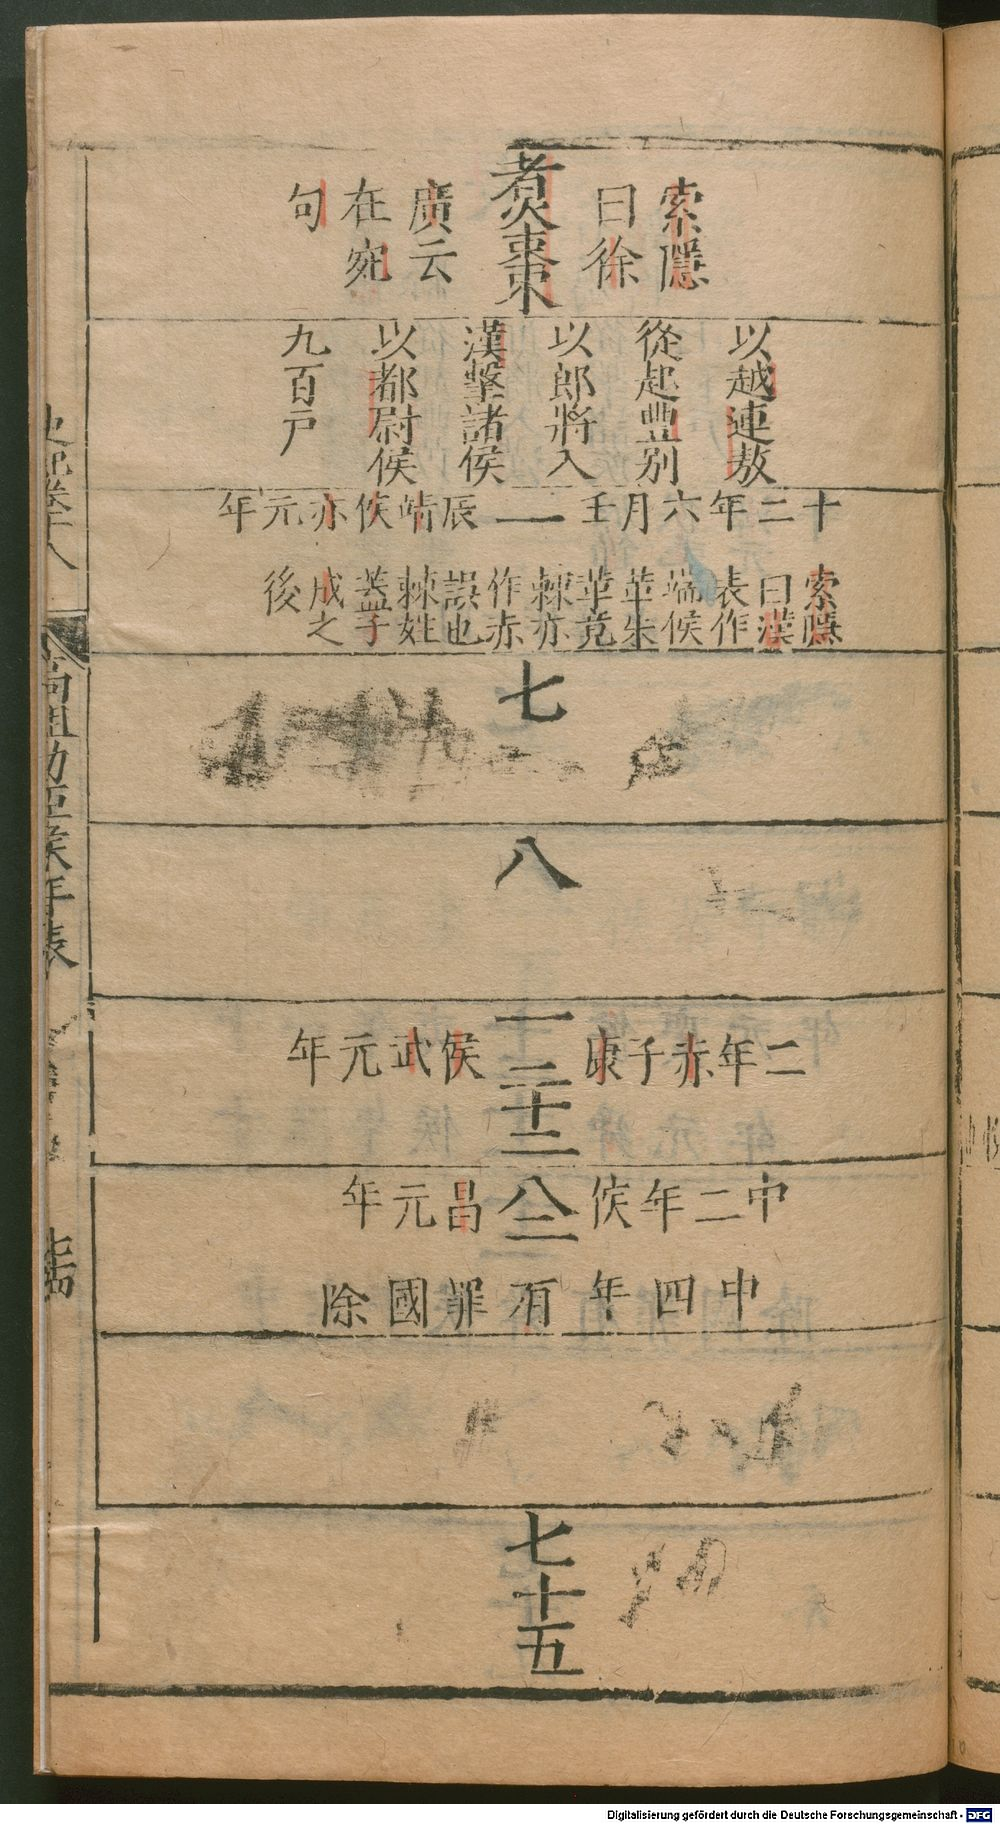 煑棗
索隱
曰徐
廣云
在宛
句
以越連敖
從起豊别
以郎將入
漢擊諸侯
以都尉侯
九百戸
十二年六月壬
一
辰靖侯亦元年
索隱
曰漢
表作
端侯
革朱
革竟
棘亦
作赤
誤也
棘姓
葢子
成之
後
七
八
一
二年赤子康
侯武元年
二十二
中二年侯
八
昌元年
二
中四年有罪國除
七十五
史記卷十八
高祖功臣侯年表
Digitalisierung gefördert durch die Deutsche Forschungsgemeinschaft - DFG